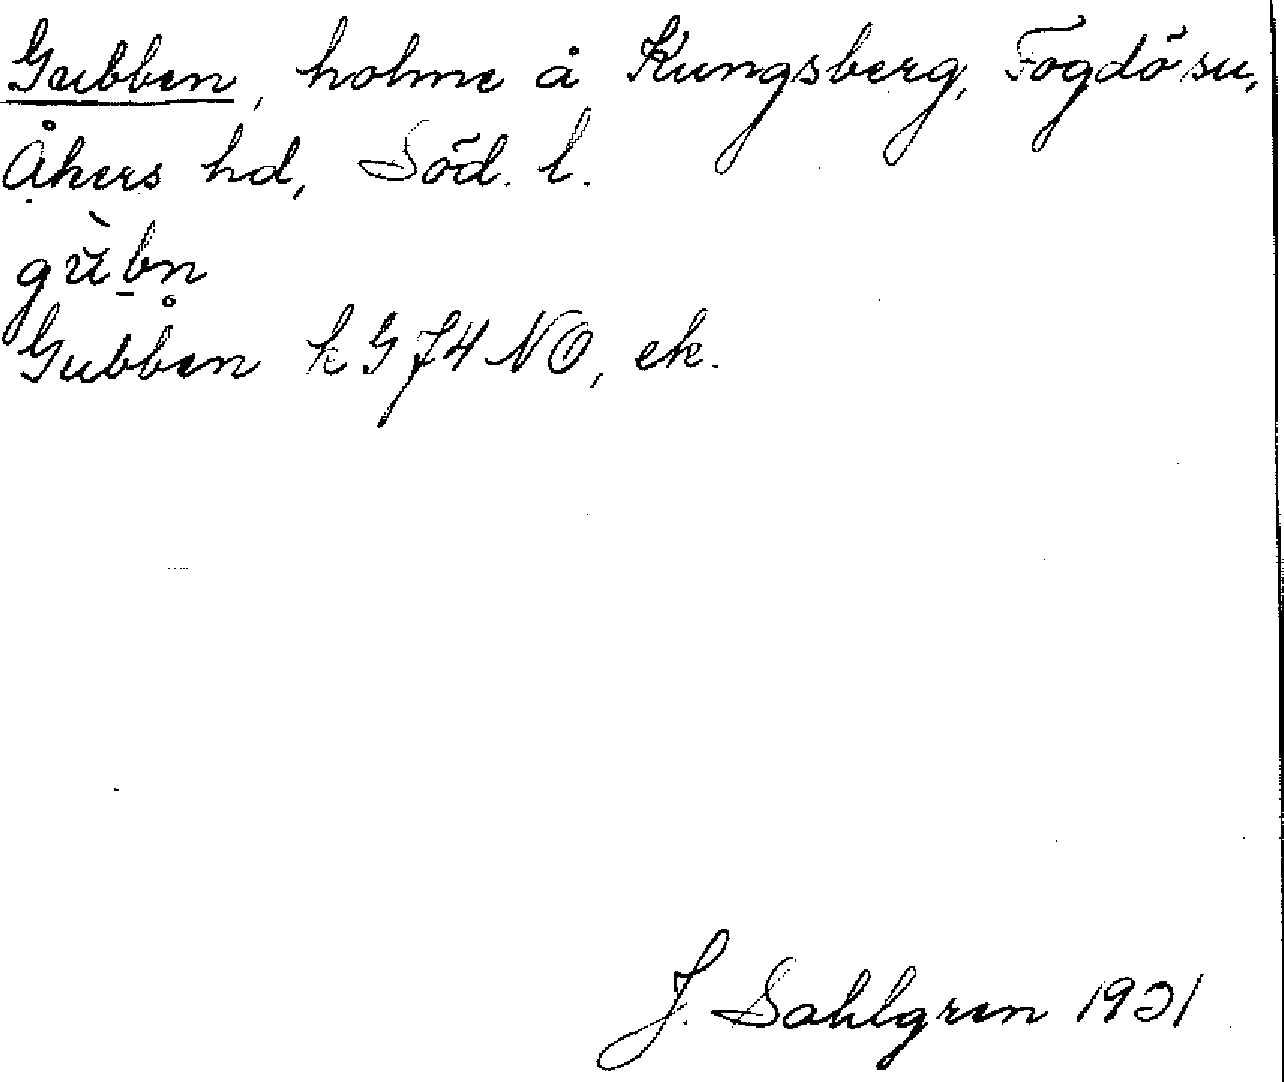 Gubben, holme å Kungsberg, Fogdö sn,
Åkers hd, Söd. l.
gù̆b̠n̥
Gubben k G 74 NO, ek.
J. Sahlgren 1921